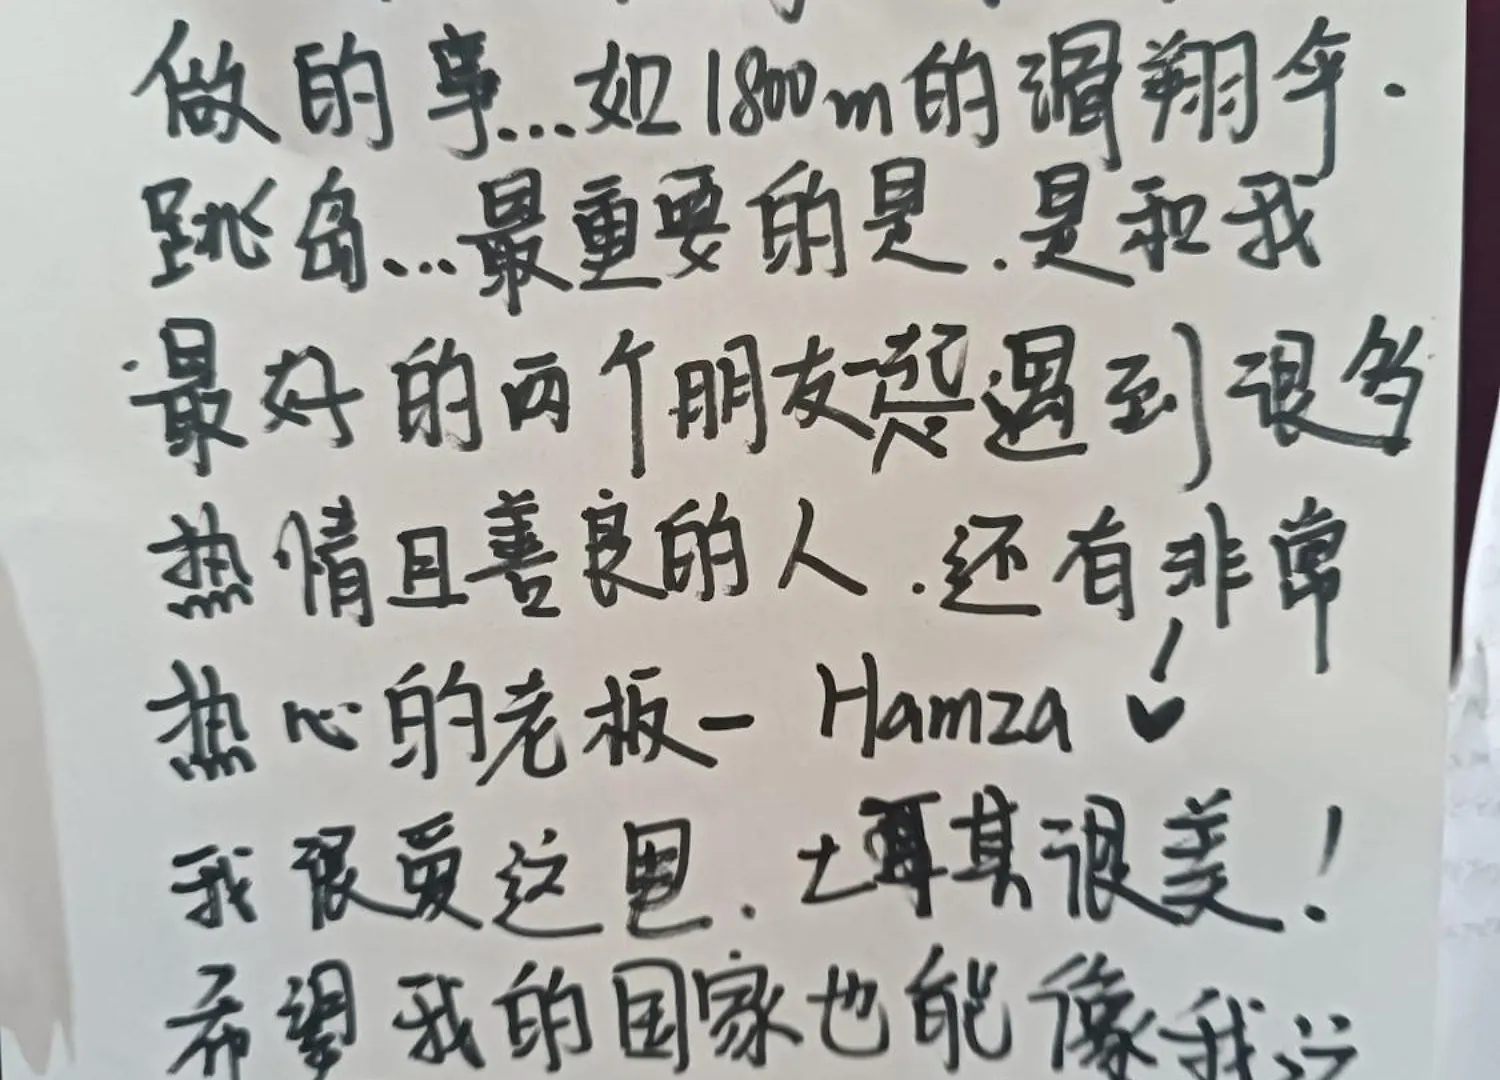 做的事...如1800m的滑翔伞.
跳岛...最重要的是.是和我
最好的两个朋友一起 遇到很多
热情且善良的人.还有非常
热心的老板- Hamza
我很爱这里.土耳其很美!
希望我的国家也能像我